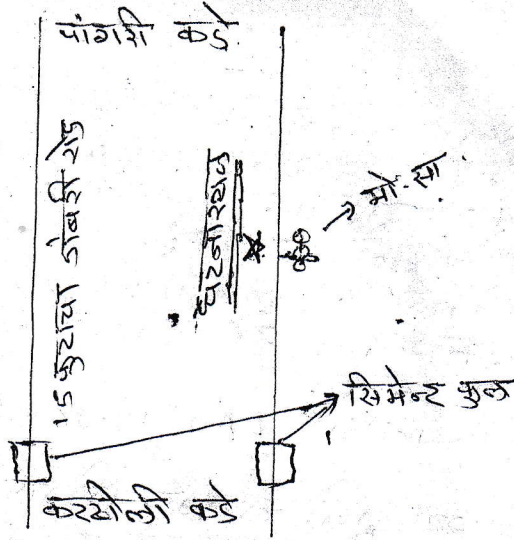 पांगरी कडे
15 फुटाचा डांबरी रोड
घटनास्थळ
मो. सा
सिमेन्ट पुल
करटोली कडे